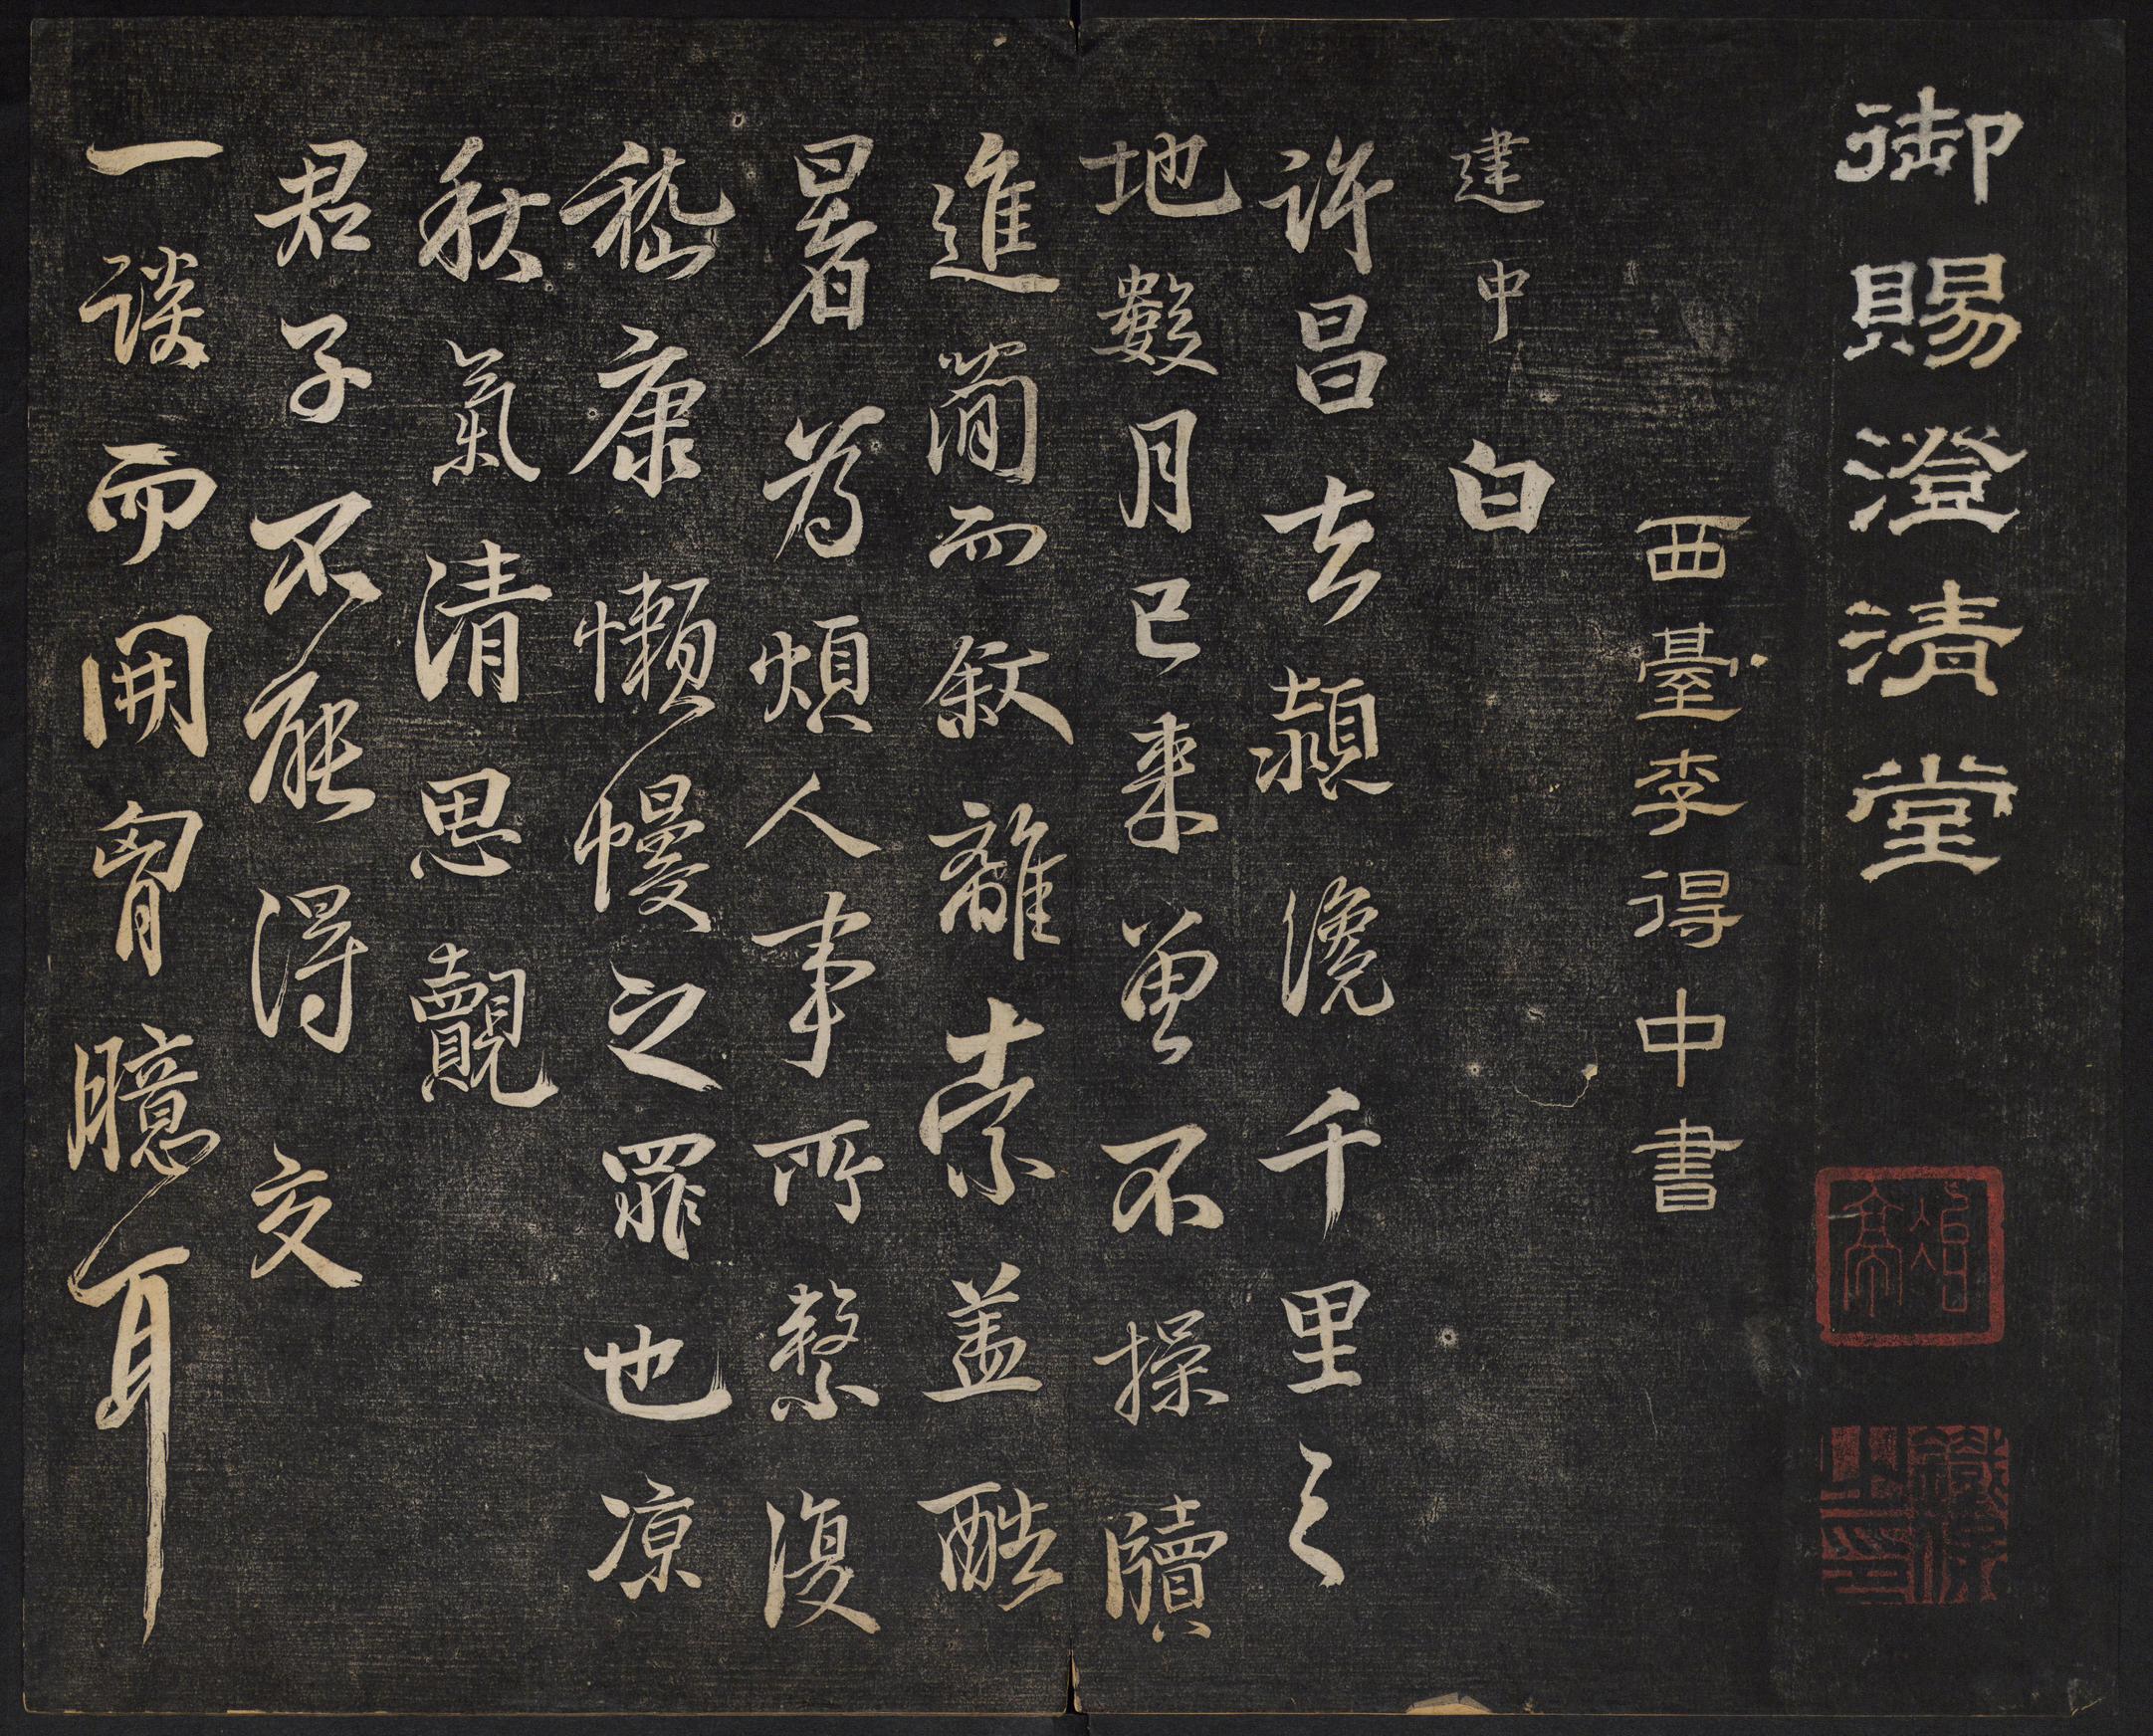 御賜澄清堂
西臺李得中書
建中白
許昌去潁瀍千里之
地數月已来曾不操牘
進簡而敘離索盖酷
暑為煩人事所繫復
嵇康懶慢之罪也凉
秋氣清思覿
君子不能得交
一談而開胷臆耳
鐵保之印